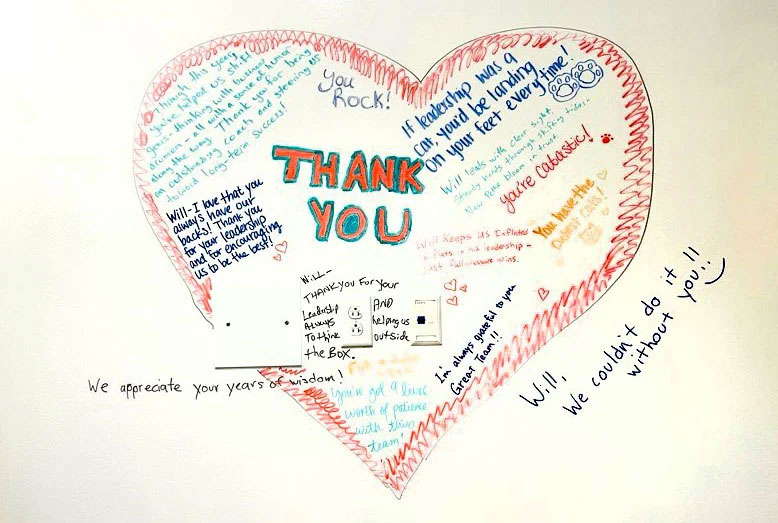 Through this year,
you've helped us shift
gears, thinking with business
women - all with a sense of humor
along the way! Thank you for being
an outstanding coach and steering us
toward long-term success!
You
ROCK!
If leadership was a
cat, you'd be landing
on your feet every time!
Will leads with clear sight
Steady hands through shifting tides -
New trust.
you're Catastic!
THANK
YOU
Will - I love that you
always have our
backs! Thank you
for your leadership
and for encouraging
us to be the best!
You have the
cutest cats!
Will Keeps US Inflated
Flats in his leadership -
Just wins.
Will -
THANK YOU For your
Leadership AND
Always helping us
To think outside
the Box.
I'm always grateful to you
Great Team!!
Will,
We couldn't do it
without you!!
We appreciate your years of wisdom!
You've got 9 lives
worth of patience
with this
team!